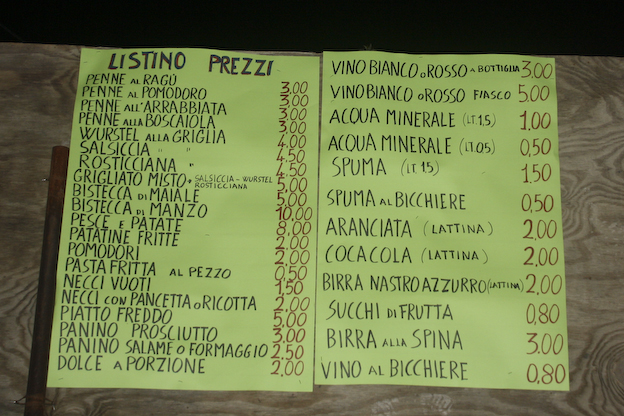 LISTINO PREZZI
PENNE AL RAGÚ 3.00
PENNE AL POMODORO 3.00
PENNE ALL'ARRABBIATA 3.00
PENNE ALLA BOSCAIOLA 3.00
WURSTEL ALLA GRIGLIA 4.00
SALSICCIA " " 4.50
ROSTICCIANA " 4.50
GRIGLIATO MISTO SALSICCIA - WURSTEL ROSTICCIANA 5.00
BISTECCA DI MAIALE 5.00
BISTECCA DI MANZO 10.00
PESCE E PATATE 8.00
PATATINE FRITTE 2.00
POMODORI 2.00
PASTA FRITTA AL PEZZO 0.50
NECCI VUOTI 1.50
NECCI CON PANCETTA O RICOTTA 2.00
PIATTO FREDDO 5.00
PANINO PROSCIUTTO 3.00
PANINO SALAME O FORMAGGIO 2.50
DOLCE A PORZIONE 2.00
VINO BIANCO O ROSSO A BOTTIGLIA 3.00
VINO BIANCO O ROSSO FIASCO 5.00
ACQUA MINERALE (LT 1.5) 1.00
ACQUA MINERALE (LT 0.5) 0,50
SPUMA (LT 1.5) 1.50
SPUMA AL BICCHIERE 0,50
ARANCIATA (LATTINA) 2,00
COCA COLA (LATTINA) 2,00
BIRRA NASTRO AZZURRO (LATTINA) 2,00
SUCCHI DI FRUTTA 0,80
BIRRA ALLA SPINA 3,00
VINO AL BICCHIERE 0,80